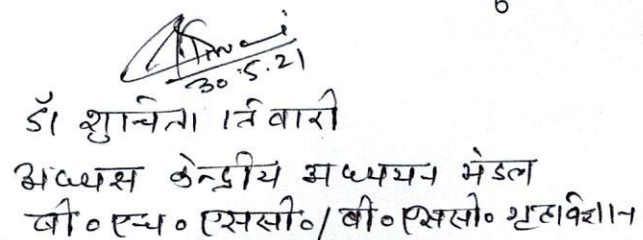 6
Tiwari
30.5.21
डॉ शुचिता तिवारी
अध्यक्ष केन्द्रीय अध्ययन मंडल
बी० एच० एससी०/बी० एससी० गृहविज्ञान